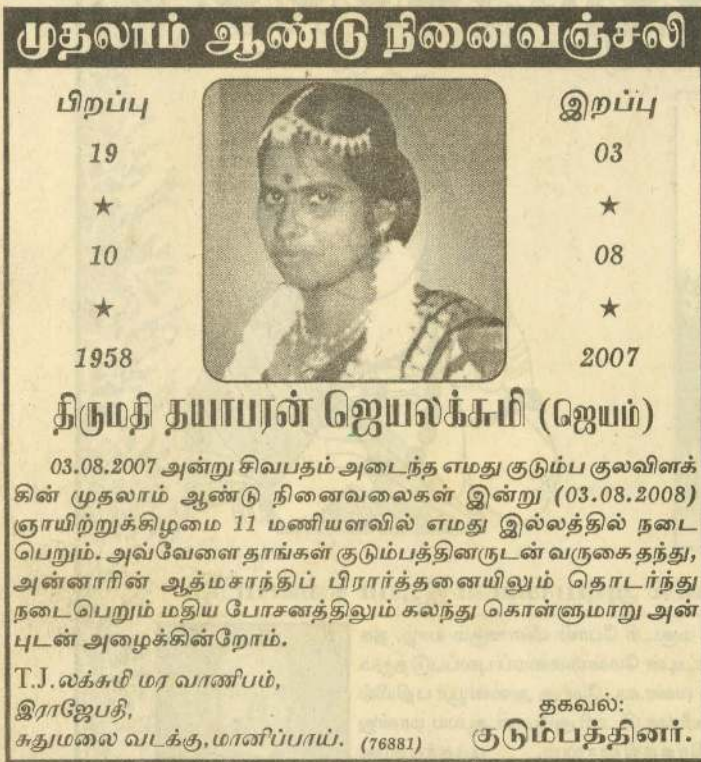 முதலாம் ஆண்டு நினைவஞ்சலி
பிறப்பு
19
★
10
★
1958
இறப்பு
03
★
08
★
2007
திருமதி தயாபரன் ஜெயலக்சுமி (ஜெயம்)
03.08.2007 அன்று சிவபதம் அடைந்த எமது குடும்ப குலவிளக்
கின் முதலாம் ஆண்டு நினைவலைகள் இன்று (03.08.2008)
ஞாயிற்றுக்கிழமை 11 மணியளவில் எமது இல்லத்தில் நடை
பெறும். அவ்வேளை தாங்கள் குடும்பத்தினருடன் வருகை தந்து,
அன்னாரின் ஆத்மசாந்திப் பிரார்த்தனையிலும் தொடர்ந்து
நடைபெறும் மதிய போசனத்திலும் கலந்து கொள்ளுமாறு அன்
புடன் அழைக்கின்றோம்.
T.J.லக்சுமி மர வாணிபம்,
இராஜேபதி,
சுதுமலை வடக்கு, மானிப்பாய். (76881)
தகவல்:
குடும்பத்தினர்.